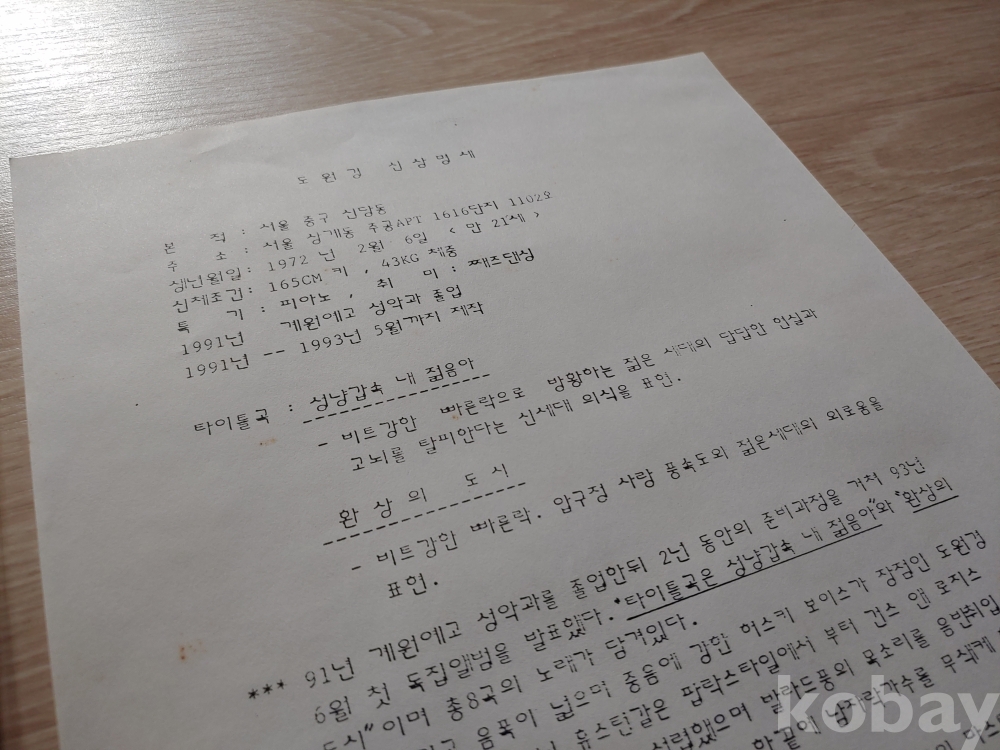 도원경 신상명세
본 적 : 서울 중구 신당동
주 소 : 서울 상계동 주공APT 1616단지 1102호
생년월일: 1972 년 2월 6일 < 만 21세 >
신체조건: 165CM 키 , 43KG 체중
특 기 : 피아노 , 취 미 : 째즈댄싱
1991년 계원예고 성악과 졸업
1991년 -- 1993년 5월까지 제작
타이틀곡 : 성냥갑속 내 젊음아
- 비트강한 빠른락으로 방황하는 젊은 세대의 답답한 현실과
고뇌를 탈피한다는 신세대 의식을 표현.
환 상 의 도 시
- 비트강한 빠른락. 압구정 사람 풍속도와 젊은세대의 외로움을
표현.
*** 91년 계원예고 성악과를 졸업한뒤 2년 동안의 준비과정을 거쳐 93년
6월 첫 독집앨범을 발표했다. "타이틀곡은 성냥갑속 내 젊음아"와 "환상의
도시"이며 총8곡의 노래가 담겨있다.
음폭이 넓으며 중음에 강한 허스키 보이스가 장점인 도원경
휴스턴같은 팝락스타일에서 부터 건스 앤 로지스
섭렵했으며 발라드풍의 목소리를 음반취입
남자락가수를 무색케
kobay